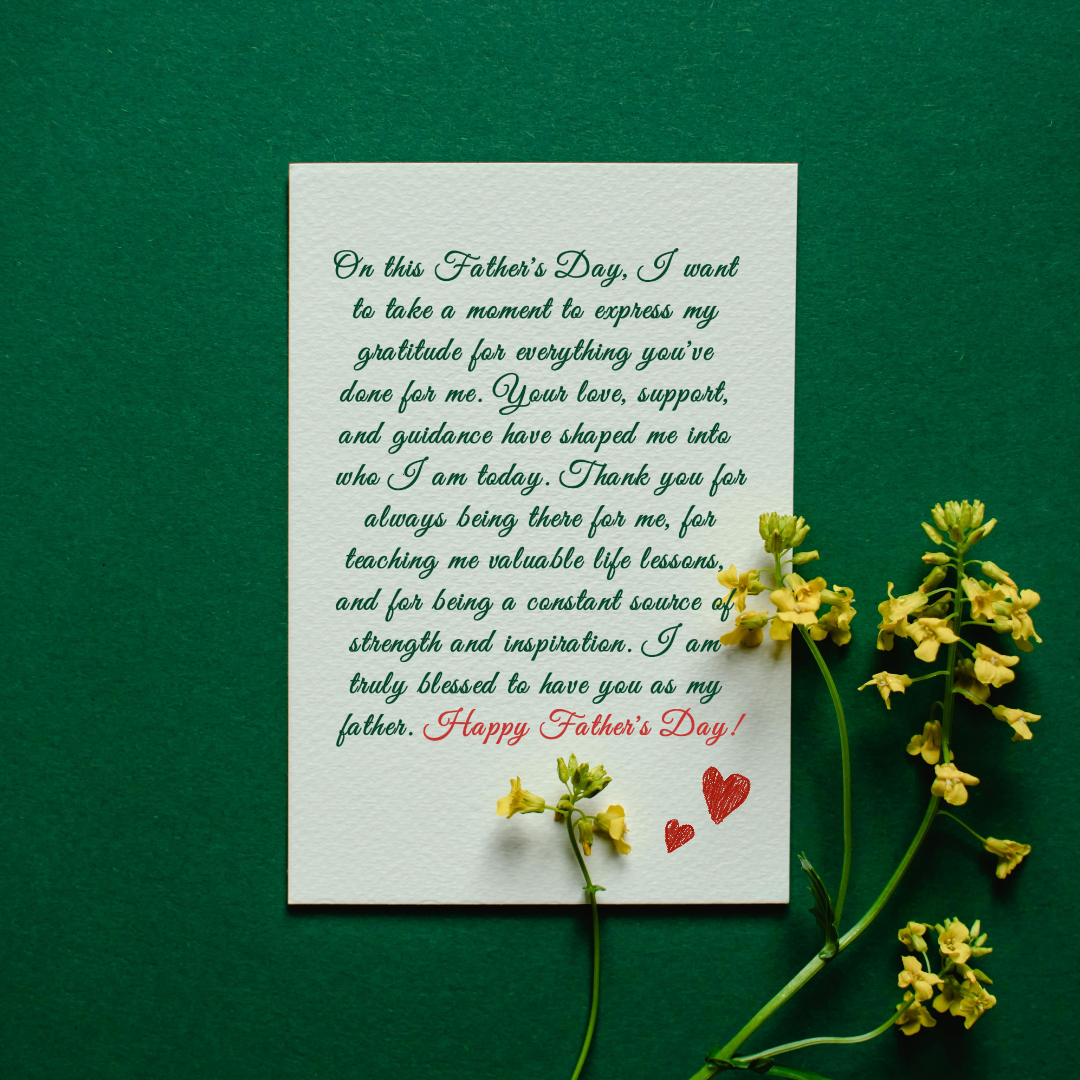 On this Father's Day, I want
to take a moment to express my
gratitude for everything you've
done for me. Your love, support,
and guidance have shaped me into
who I am today. Thank you for
always being there for me, for
teaching me valuable life lessons,
and for being a constant source of
strength and inspiration. I am
truly blessed to have you as my
father. Happy Father's Day!